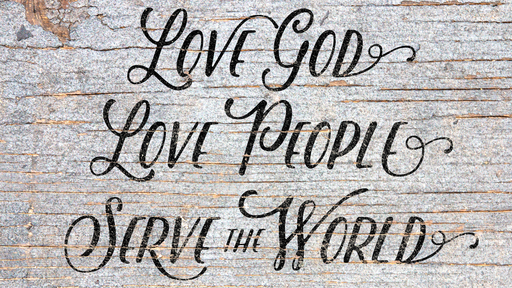 Love God
Love People
Serve the World